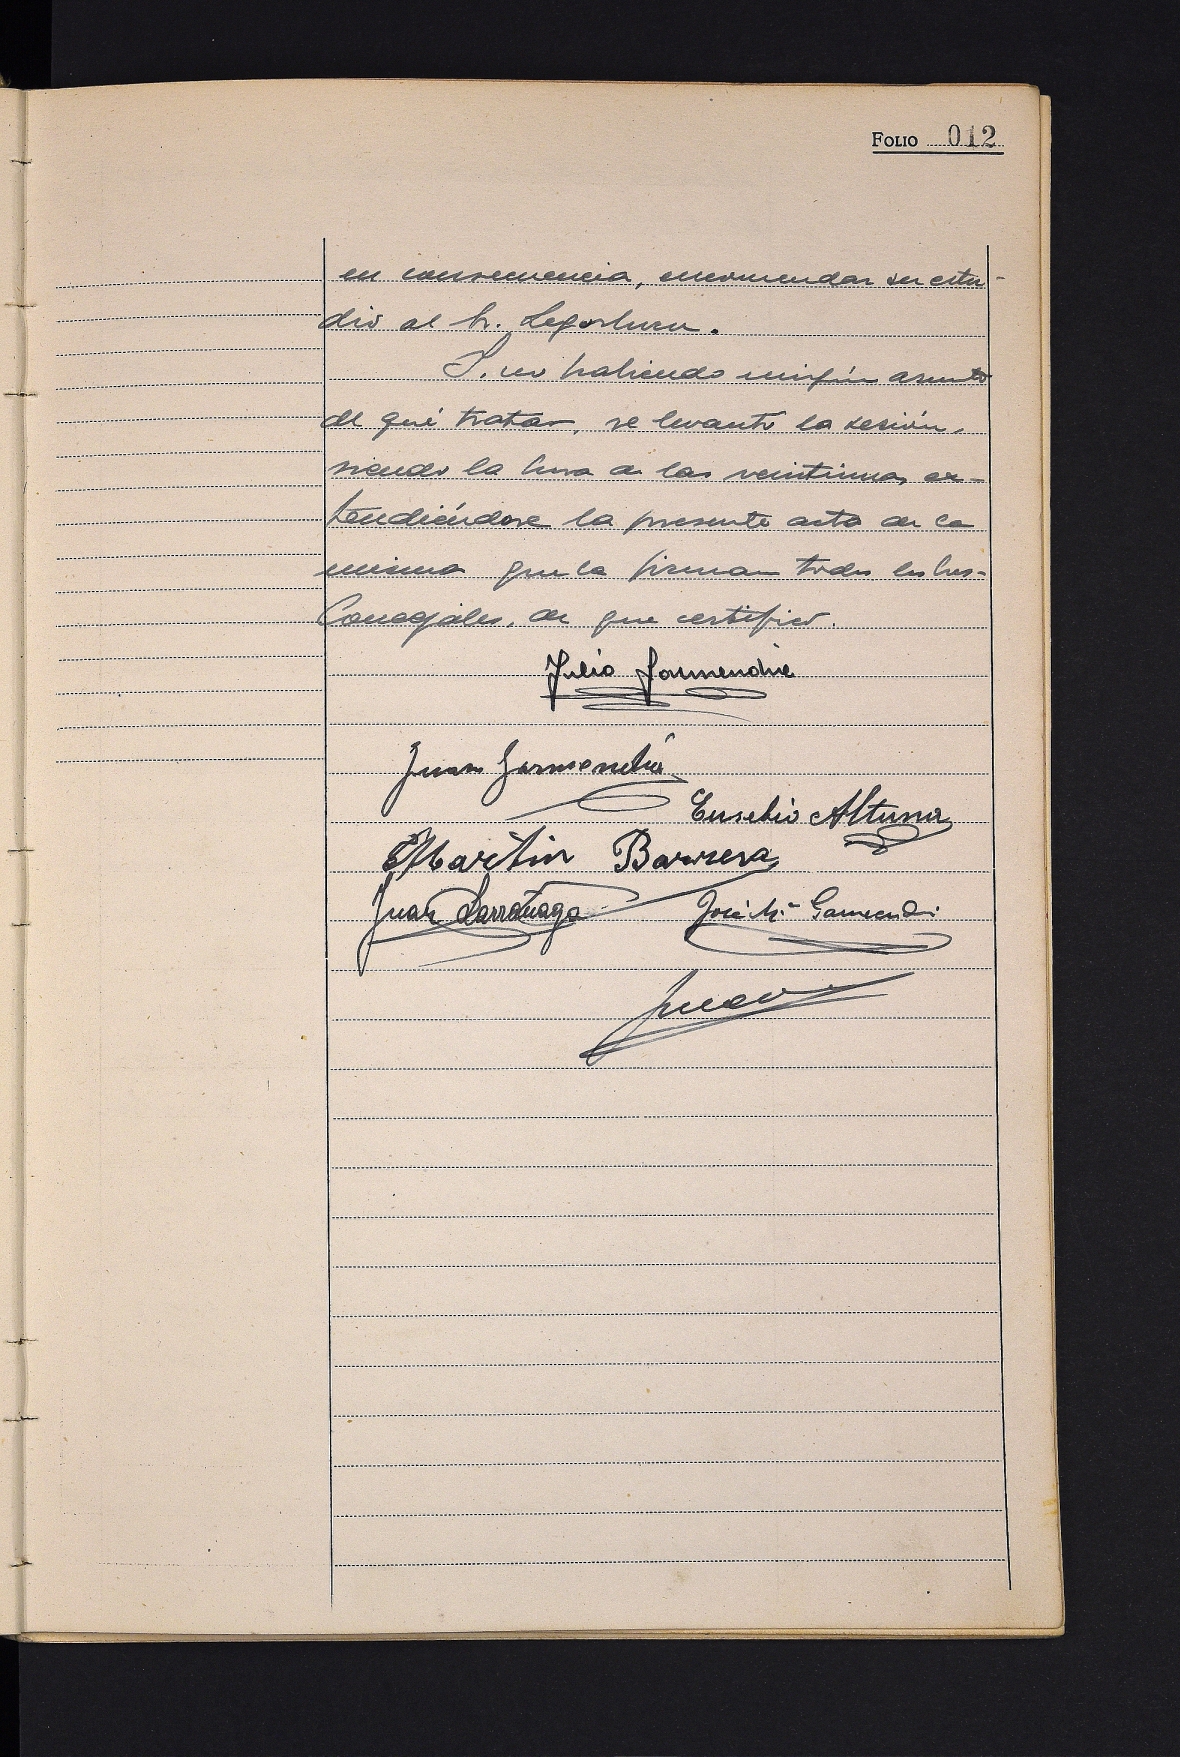 FOLIO 012
en consecuencia, encomendar su estu-
dio al Sr. Legorburu.
Y no habiendo ningún asunto
de qué tratar, se levantó la sesión,
siendo la hora de las veintiuna, ex-
tendiéndose la presente acta de la
misma que la firman todos los Sres.
Concejales, de que certifico.
Julio Garmendia
Juan Garmendia
Eusebio Altuna
Martin Barrera
Juan Larrañaga José Mª Garmendi